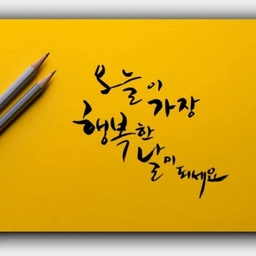 오늘이 가장
행복한
날이 되세요